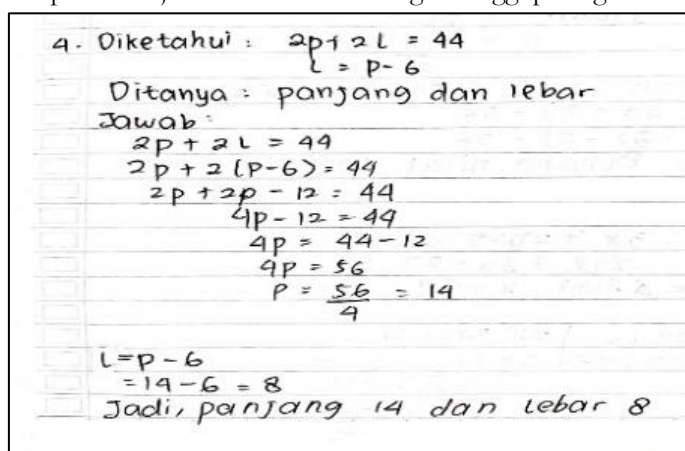 4. Diketahui : 2p + 2l = 44
l = p - 6
Ditanya : panjang dan lebar
Jawab :
2p + 2l = 44
2p + 2(p-6) = 44
2p + 2p - 12 = 44
4p - 12 = 44
4p = 44 - 12
4p = 56
p = 56/4 = 14
l = p - 6
= 14 - 6 = 8
Jadi, panjang 14 dan lebar 8